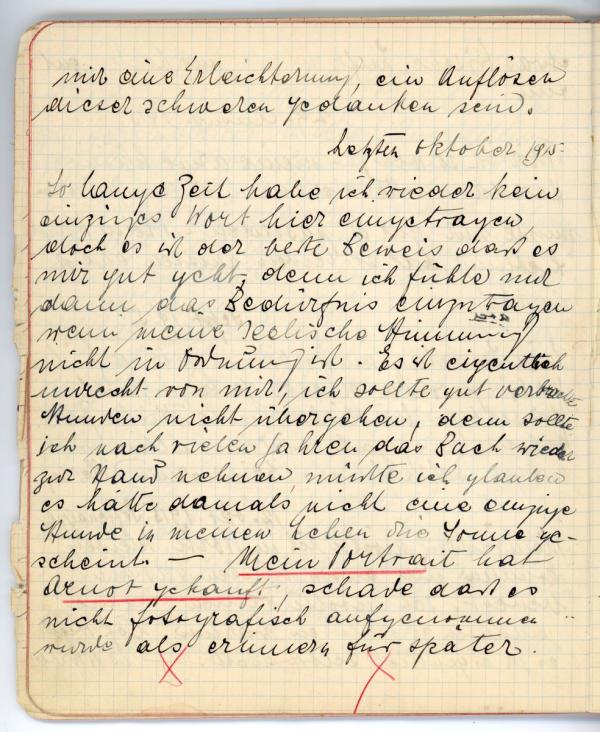 mir eine Erleichterung, ein Auflösen
dieser schweren Gedanken sein.
Letzten Oktober 1915.
So lange Zeit habe ich wieder kein
einziges Wort hier eingetragen,
doch es ist der beste Beweis dass es
mir gut geht, denn ich fühle nur
dann das Bedürfnis einzutragen
wenn meine seelische Stimmung
nicht in Ordnung ist. Es ist eigentlich
unrecht von mir, ich sollte gut verbrachte
Stunden nicht übergehen, denn sollte
ich nach vielen Jahren das Buch wieder
zur Hand nehmen, müsste ich glauben
es hätte damals nicht eine einzige
Stunde in meinem Leben die Sonne ge-
scheint. — Mein Portrait hat
Arnot gekauft, schade dass es
nicht fotografisch aufgenommen
wurde als erinnern für später.